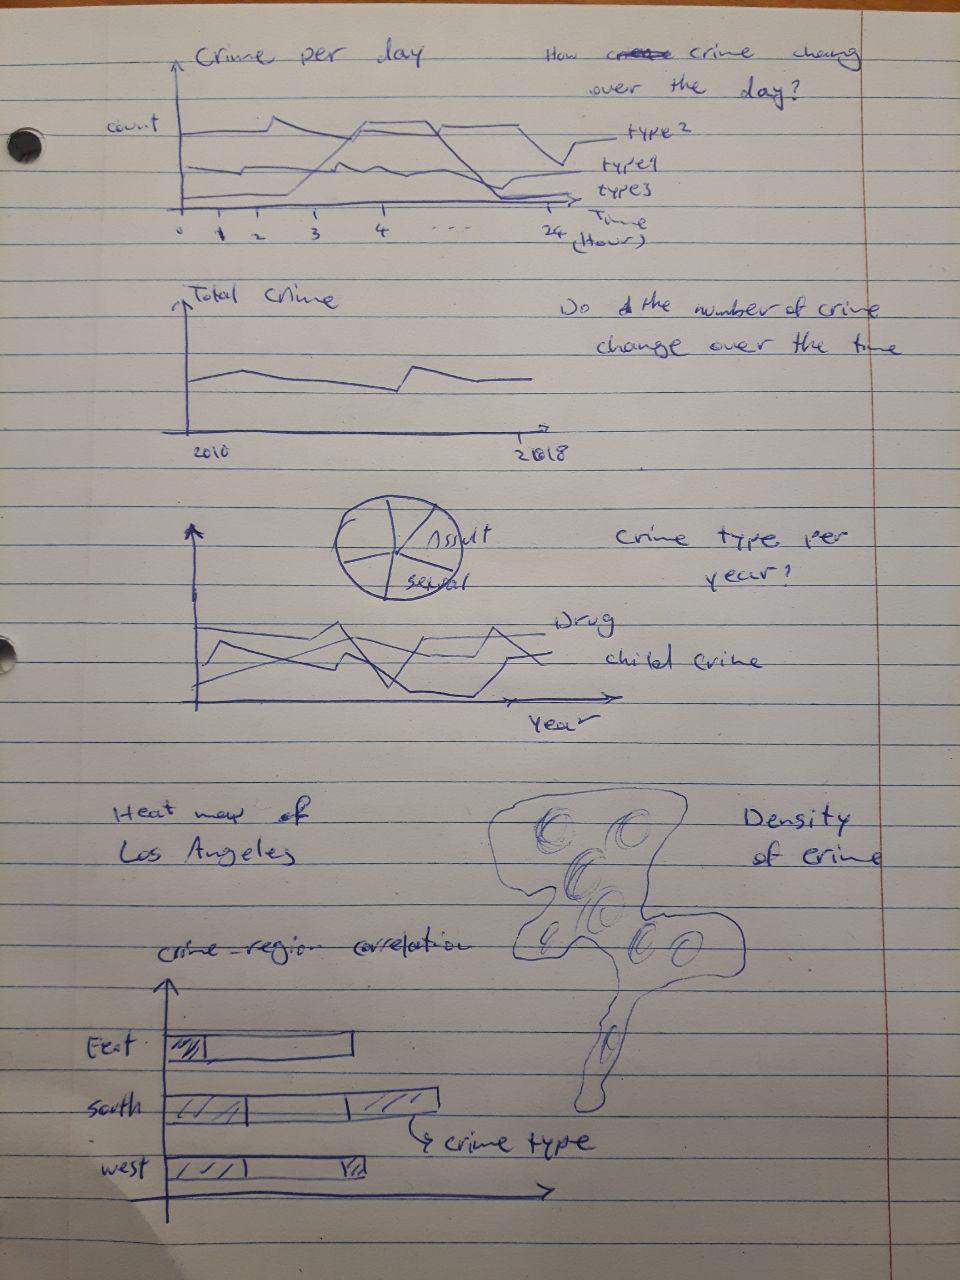 Crime per day
How crime chang
over the day?
count
type2
type1
type3
0 1 2 3 4 ... 24
Time
(Hour)
Total crime
Do the number of crime
change over the time
2010 2018
Assult
sexual
Crime type per
year?
Drug
child crime
Year
Heat map of
Los Angeles
Density
of crime
crime-region correlation
East
south
crime type
west